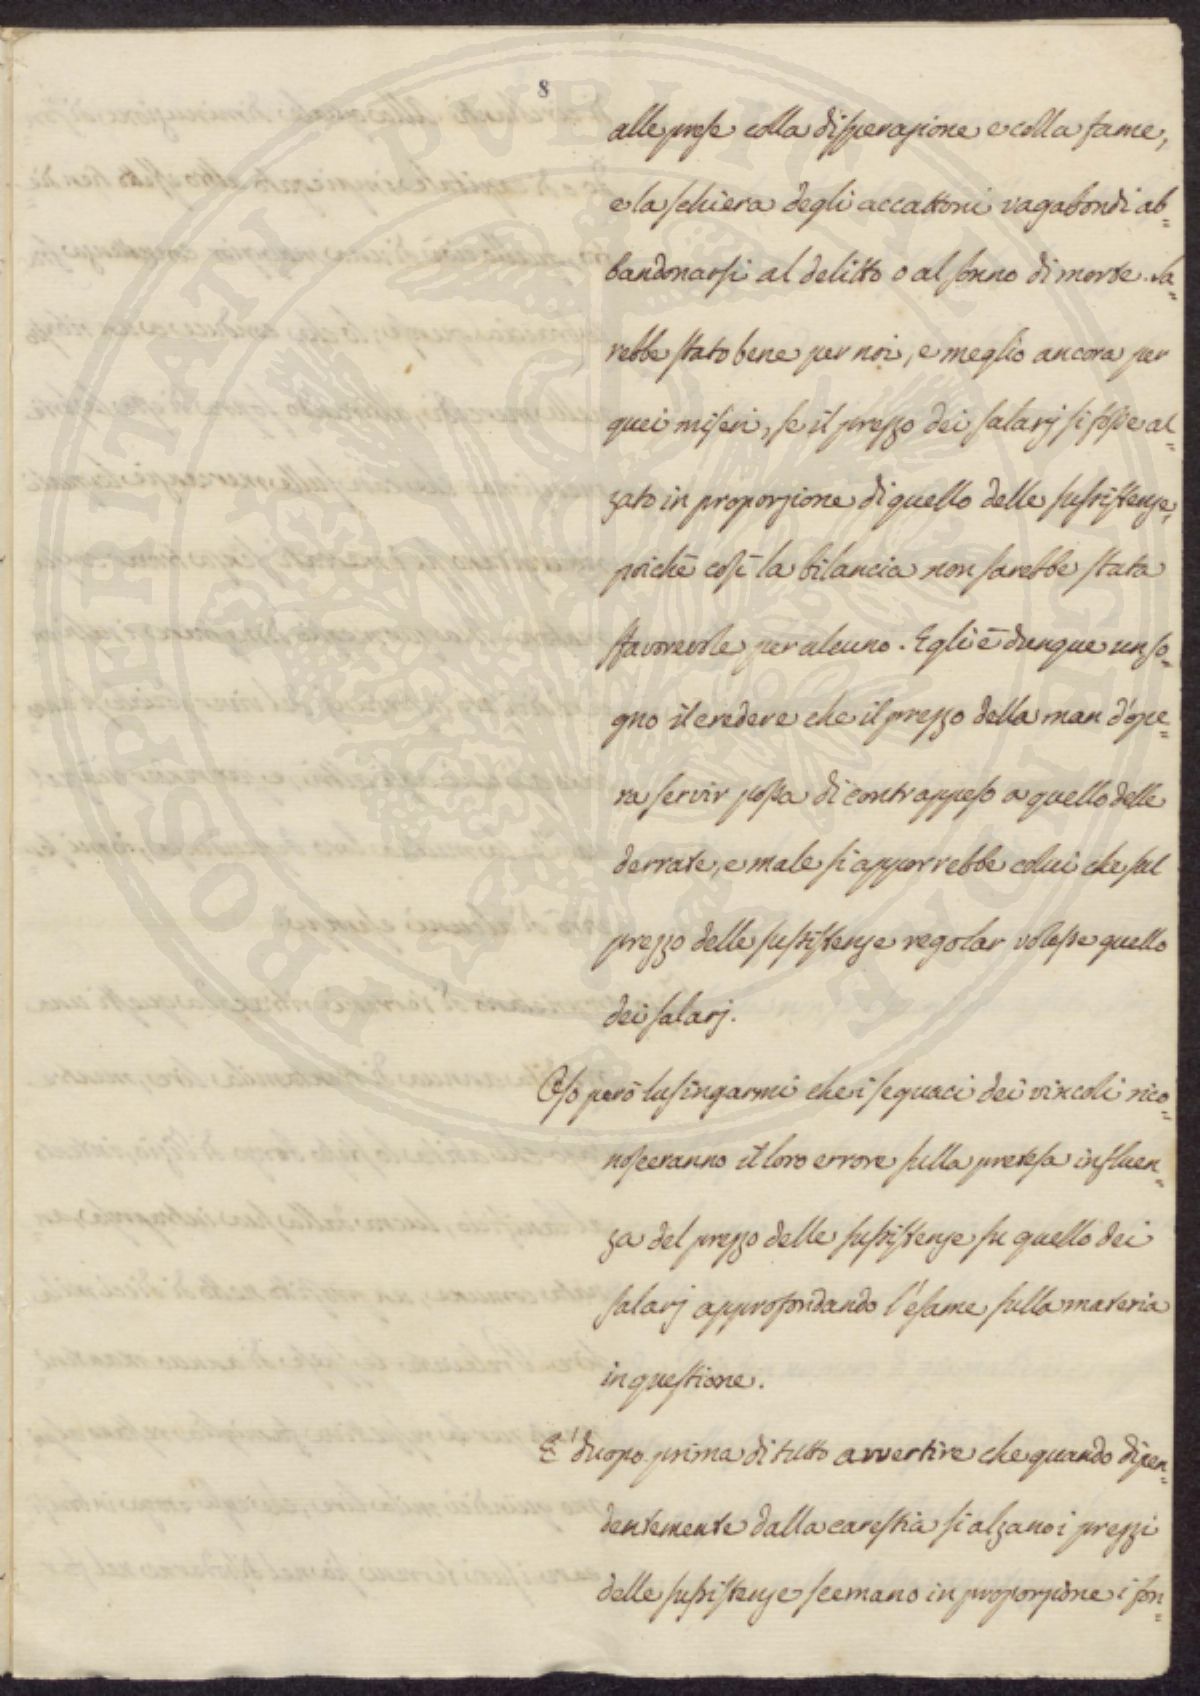 8
alle prese colla disperazione e colla fame,
e la schiera degli accattoni vagabondi ab=
bandonarsi al delitto o al sonno di morte. Sa=
rebbe stato bene per noi, e meglio ancora per
quei miseri, se il prezzo dei salarj si fosse al=
zato in proporzione di quello delle sussistenze,
poichè così la bilancia non sarebbe stata
sfavorevole per alcuno. Egli è dunque un so=
gno il credere che il prezzo della man d'ope=
ra servir possa di contrappeso a quello delle
derrate, e male si apporrebbe colui che sul
prezzo delle sussistenze regolar volesse quello
dei salarj.
Oso però lusingarmi che i seguaci dei vincoli rico=
nosceranno il loro errore sulla pretesa influen=
za del prezzo delle sussistenze su quello dei
salarj approfondando l'esame sulla materia
in questione.
E' duopo prima di tutto avvertire che quando dipen=
dentemente dalla carestia si alzano i prezzi
delle sussistenze scemano in proporzione i fon=
PROSPERITATI PUBLICAE AUGENDAE